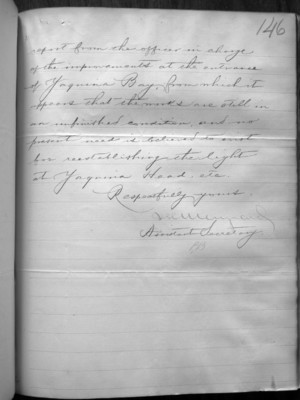 146
report from the officer in charge
of the improvements at the entrance
of Yaquina Bay, from which it
appears that the works are still in
an unfinished condition, and no
present need is believed to exist
for reestablishing the light
at Yaquina Head, etc.
Respectfully yours,
Assistant Secretary